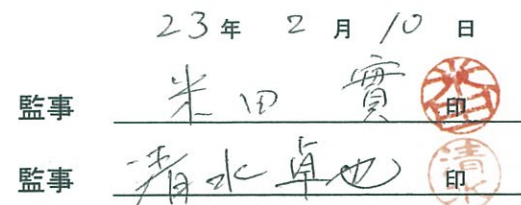 23年 2月10日
監事 米田 實 印
監事 清水卓也 印